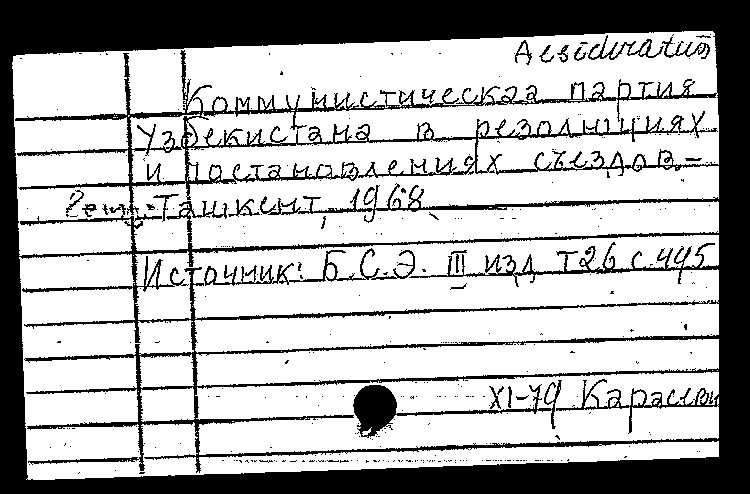 Desideratum
Коммунистическая партия
Узбекистана в резолюциях
и постановлениях съездов.–
Ташкент, 1968.
Источник: Б.С.Э. III изд т26 с.445
XI-79